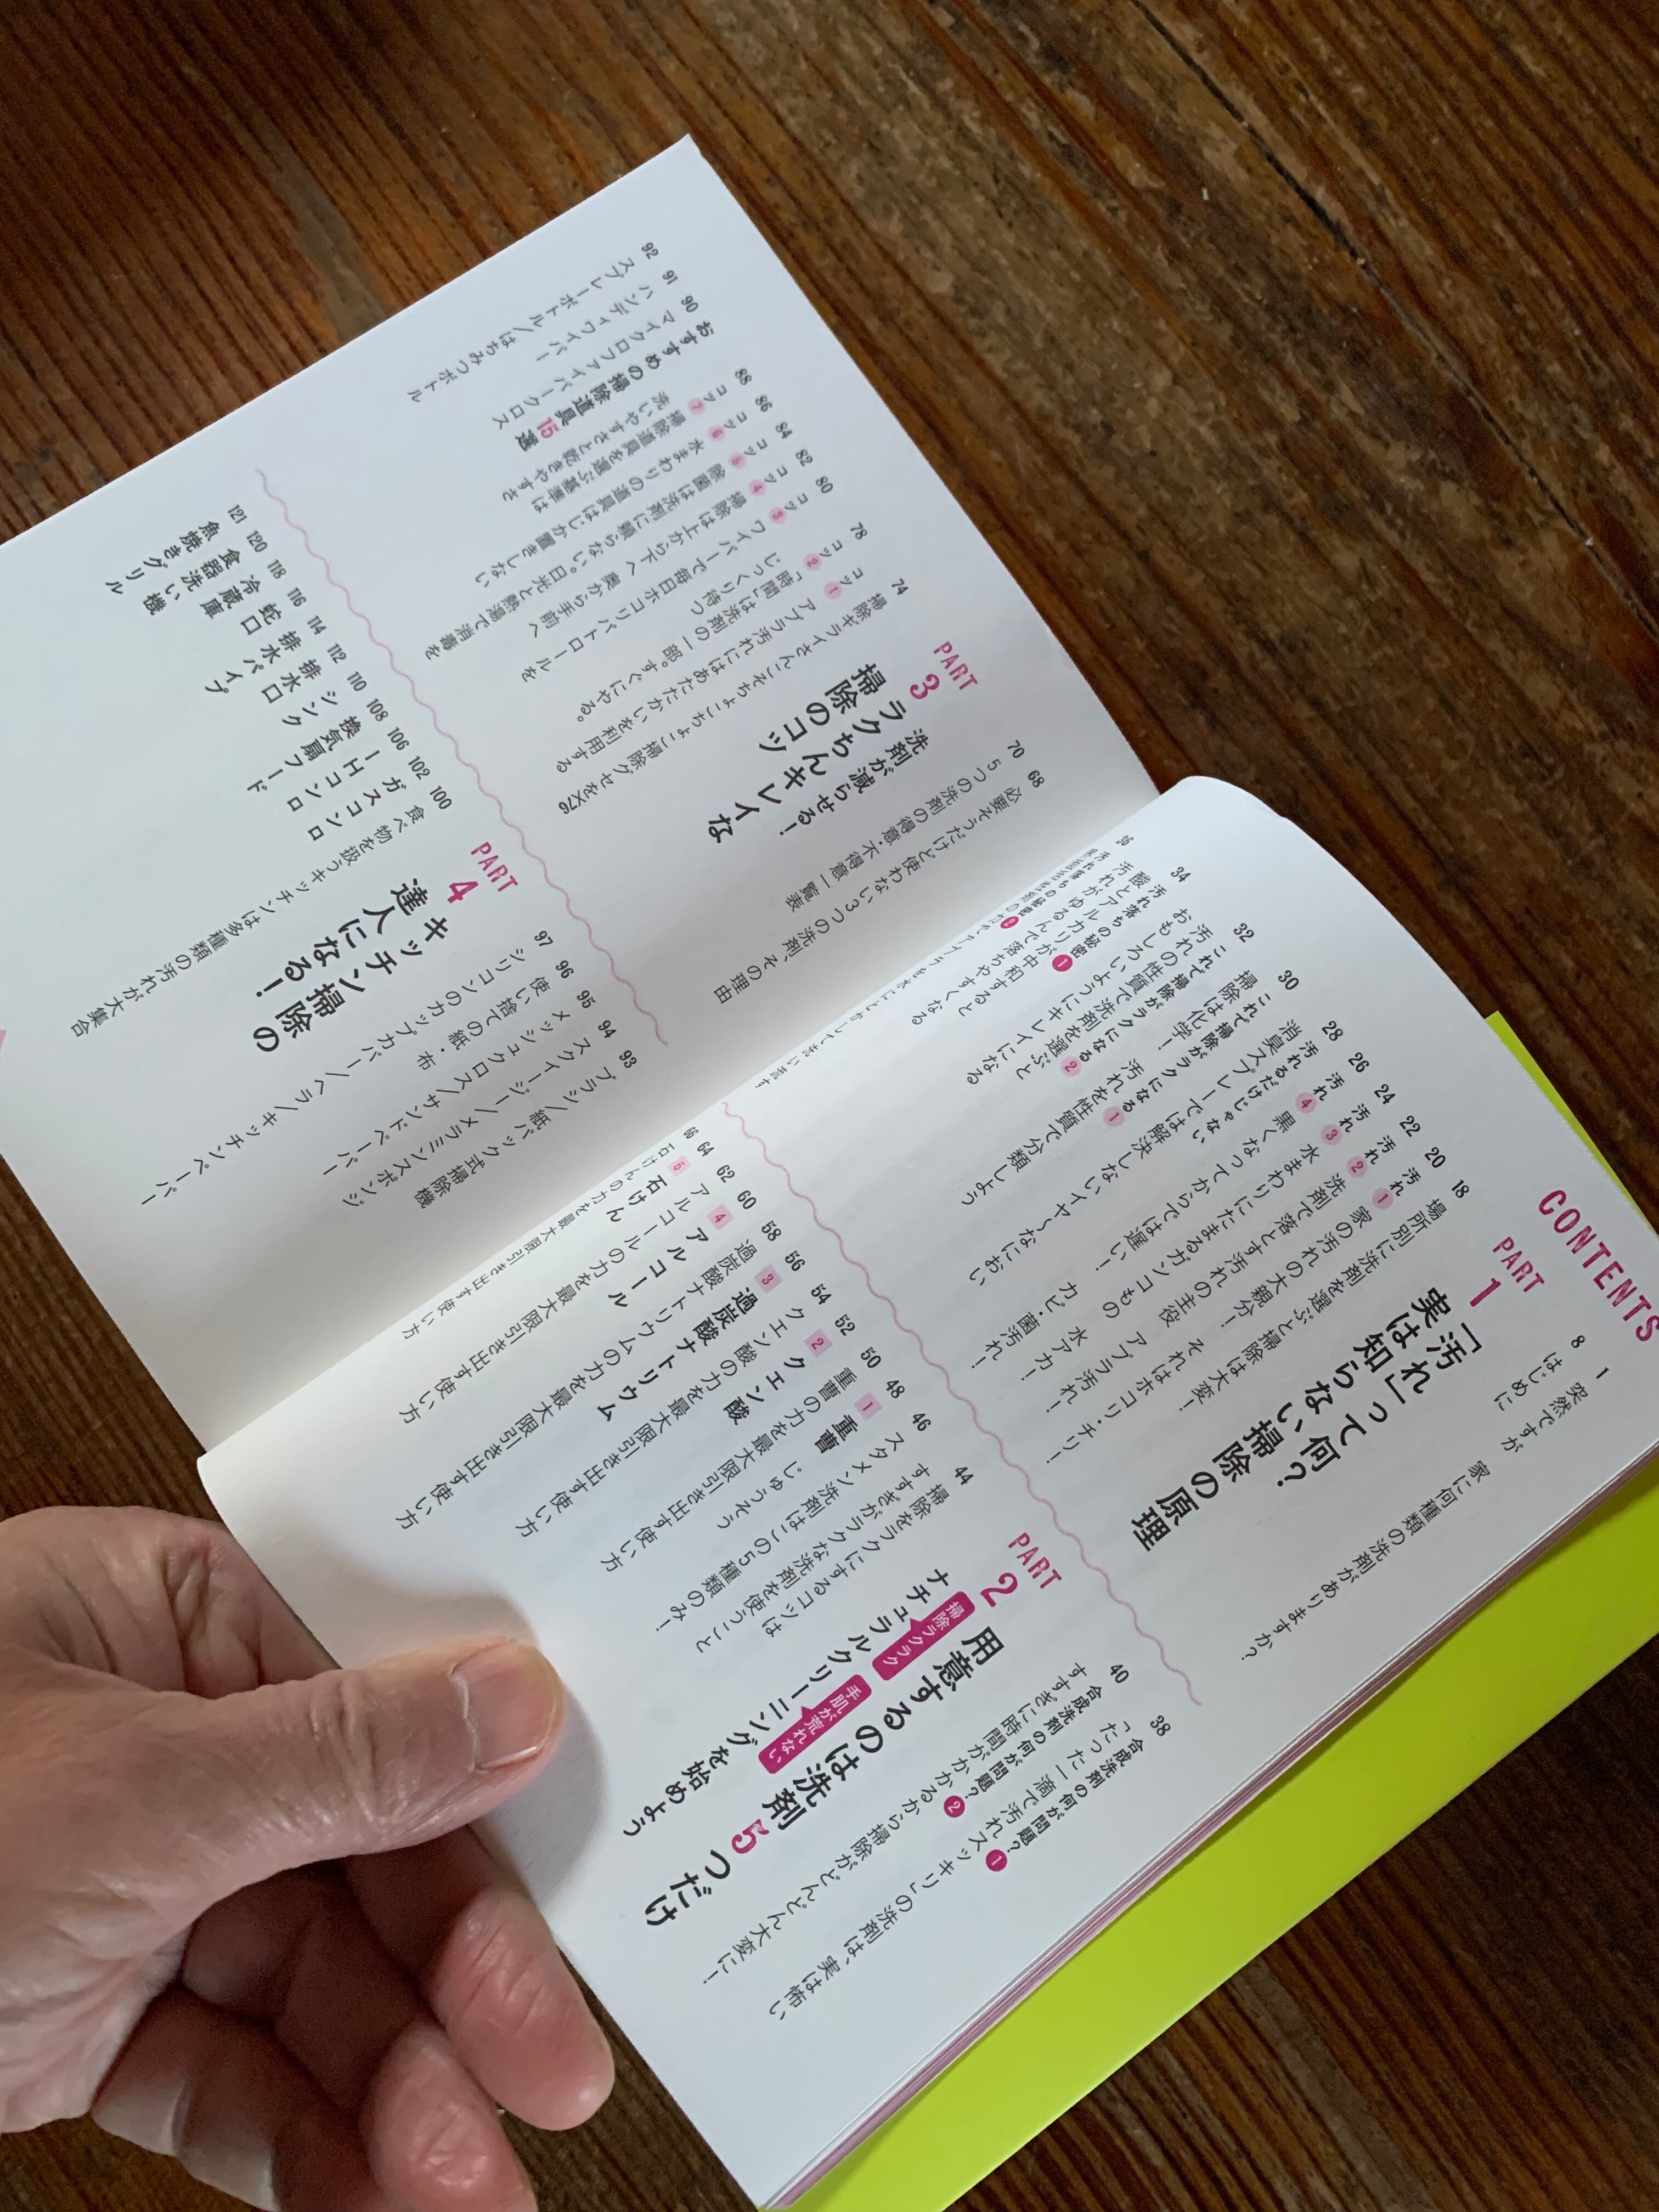 CONTENTS
1 突然ですが 家に何種類の洗剤がありますか?
8 はじめに
PART 1
「汚れ」って何?
実は知らない掃除の原理
18 場所別に洗剤を選ぶと掃除は大変!
20 汚れ1 家の汚れの大親分! それはホコリ・チリ!
22 汚れ2 洗剤で落とす汚れの主役 アブラ汚れ!
24 汚れ3 水まわりにたまるガンコもの 水アカ!
26 汚れ4 黒くなってからでは遅い! カビ・菌汚れ!
28 汚れるだけじゃない イヤ〜なにおい
消臭スプレーでは解決しない
30 これで掃除がラクになる1
掃除は化学! 汚れを性質で分類しよう
32 これで掃除がラクになる2
お汚れの性質で洗剤を選ぶと
おもしろいようにキレイになる
34 汚れ落ちの秘密1
酸とアルカリが中和すると
汚れがゆるんで落ちやすくなる
36 汚れ落ちの秘密2
38 合成洗剤の何が問題?1
「たった一滴で汚れスッキリ」の洗剤は、実は怖い
40 合成洗剤の何が問題?2
すすぎに時間がかかるから掃除がどんどん大変に!
PART 2
用意するのは洗剤5つだけ
掃除ラクラク
手肌が荒れない
ナチュラルクリーニングを始めよう
44 掃除をラクにするコツは
すすぎがラクな洗剤を使うこと
46 スタメン洗剤はこの5種類のみ!
48 1 重曹 じゅうそう
50 重曹の力を最大限引き出す使い方
52 2 クエン酸
54 クエン酸の力を最大限引き出す使い方
56 3 過炭酸ナトリウム
58 過炭酸ナトリウムの力を最大限引き出す使い方
60 4 アルコール
62 アルコールの力を最大限引き出す使い方
64 5 石けん
66 石けんの力を最大限引き出す使い方
68 必要そうだけど使わない3つの洗剤、その理由
70 5つの洗剤の得意・不得意一覧表
PART 3
洗剤が減らせる!
ラクちんキレイな
掃除のコツ
74 掃除ギライさんこそちょこちょこ掃除グセを
76
コツ1 アブラ汚れにはあたたかいを利用する
78 コツ2 「時間」は洗剤の一部。すぐにやる。
じっくり待つ
80 コツ3 ワイパーで毎日ホコリパトロールを
82 コツ4 掃除は上から下へ 奥から手前へ
84 コツ5 除菌は洗剤に頼らない。日光と熱湯で消毒を
86 コツ6 水まわりの道具はじか置きしない
88 コツ7 掃除道具を選ぶ基準は
洗いやすさと乾きやすさ
おすすめの掃除道具15選
90 マイクロファイバークロス
91 ハンディワイパー
92 スプレーボトル/はちみつボトル
93 ブラシ/紙パック式掃除機
94 スクイージー/メラミンスポンジ
95 メッシュクロス/サンドペーパー
96 使い捨ての紙・布
97 シリコンのカップカバー/ヘラ/キッチンペーパー
PART 4
キッチン掃除の
達人になる!
100 食べ物を扱うキッチンは多種類の汚れが大集合
102 ガスコンロ
106 IHコンロ
108 換気扇フード
110 シンク
112 排水口
114 排水パイプ
116 蛇口
118 冷蔵庫
120 食器洗い機
121 魚焼きグリル